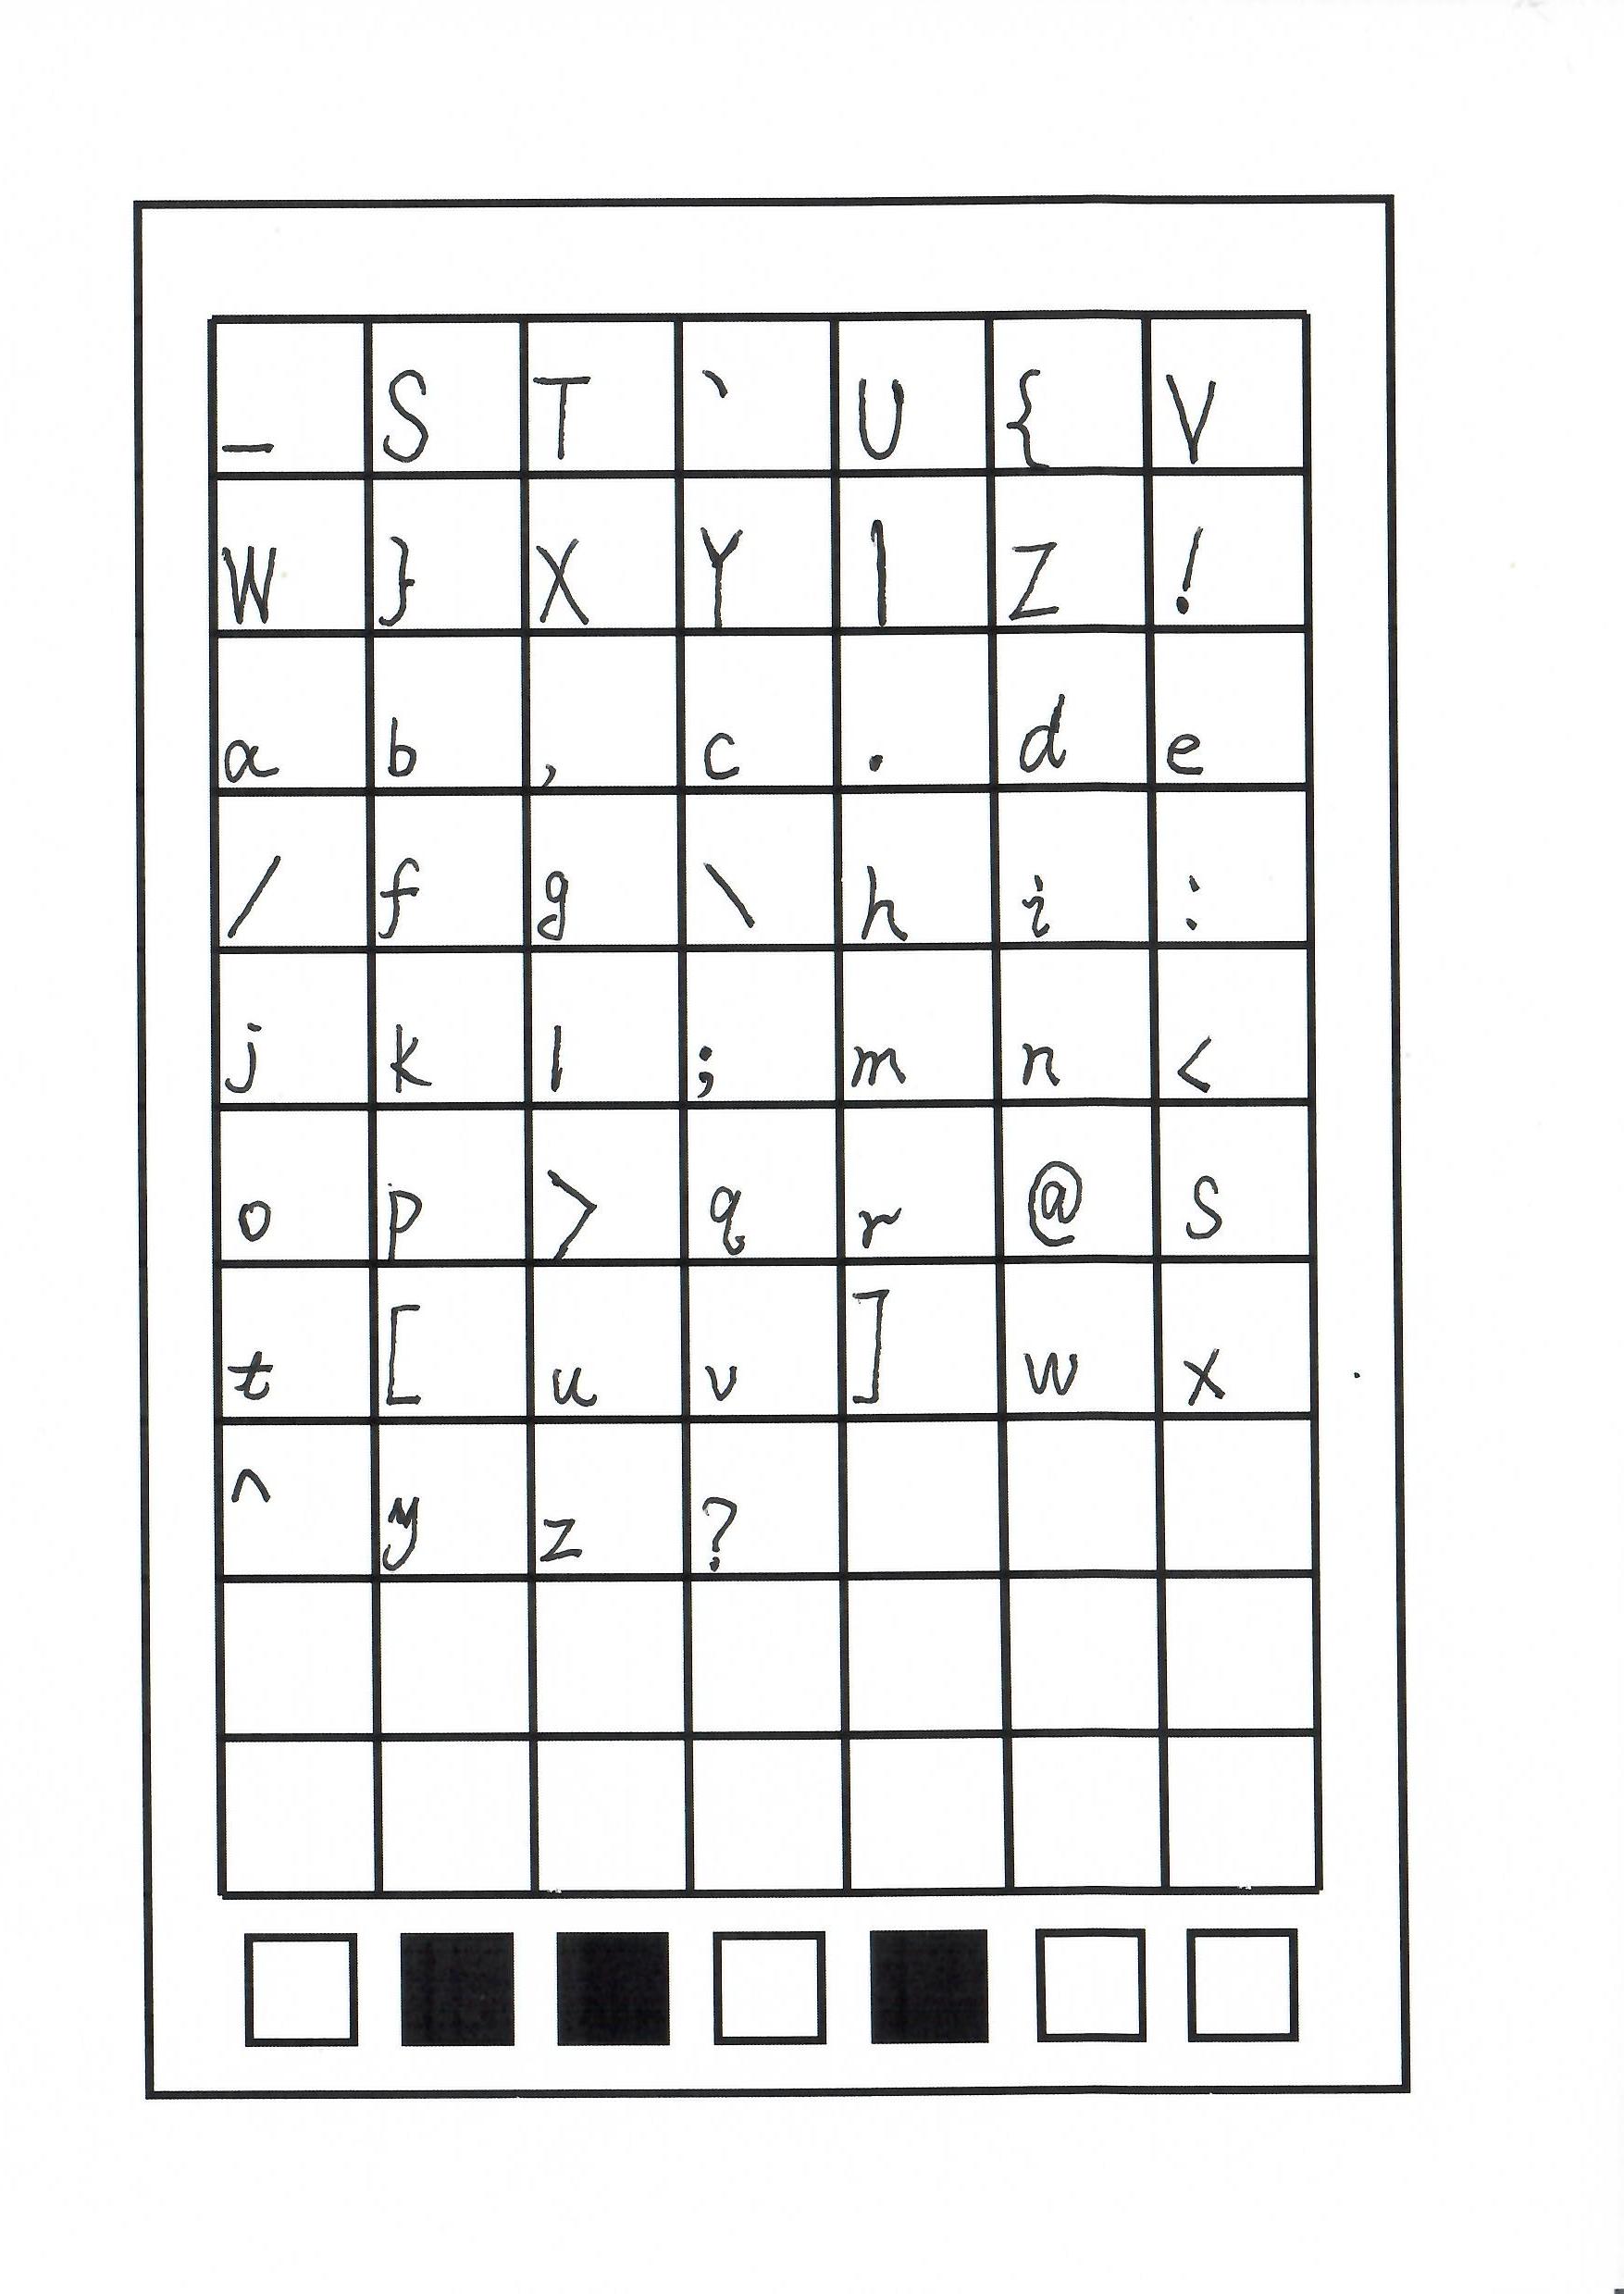 _ S T ` U { V
W } X Y | Z !
a b , c . d e
/ f g \ h i :
j k l ; m n <
o p > q r @ s
t [ u v ] w x
^ y z ?